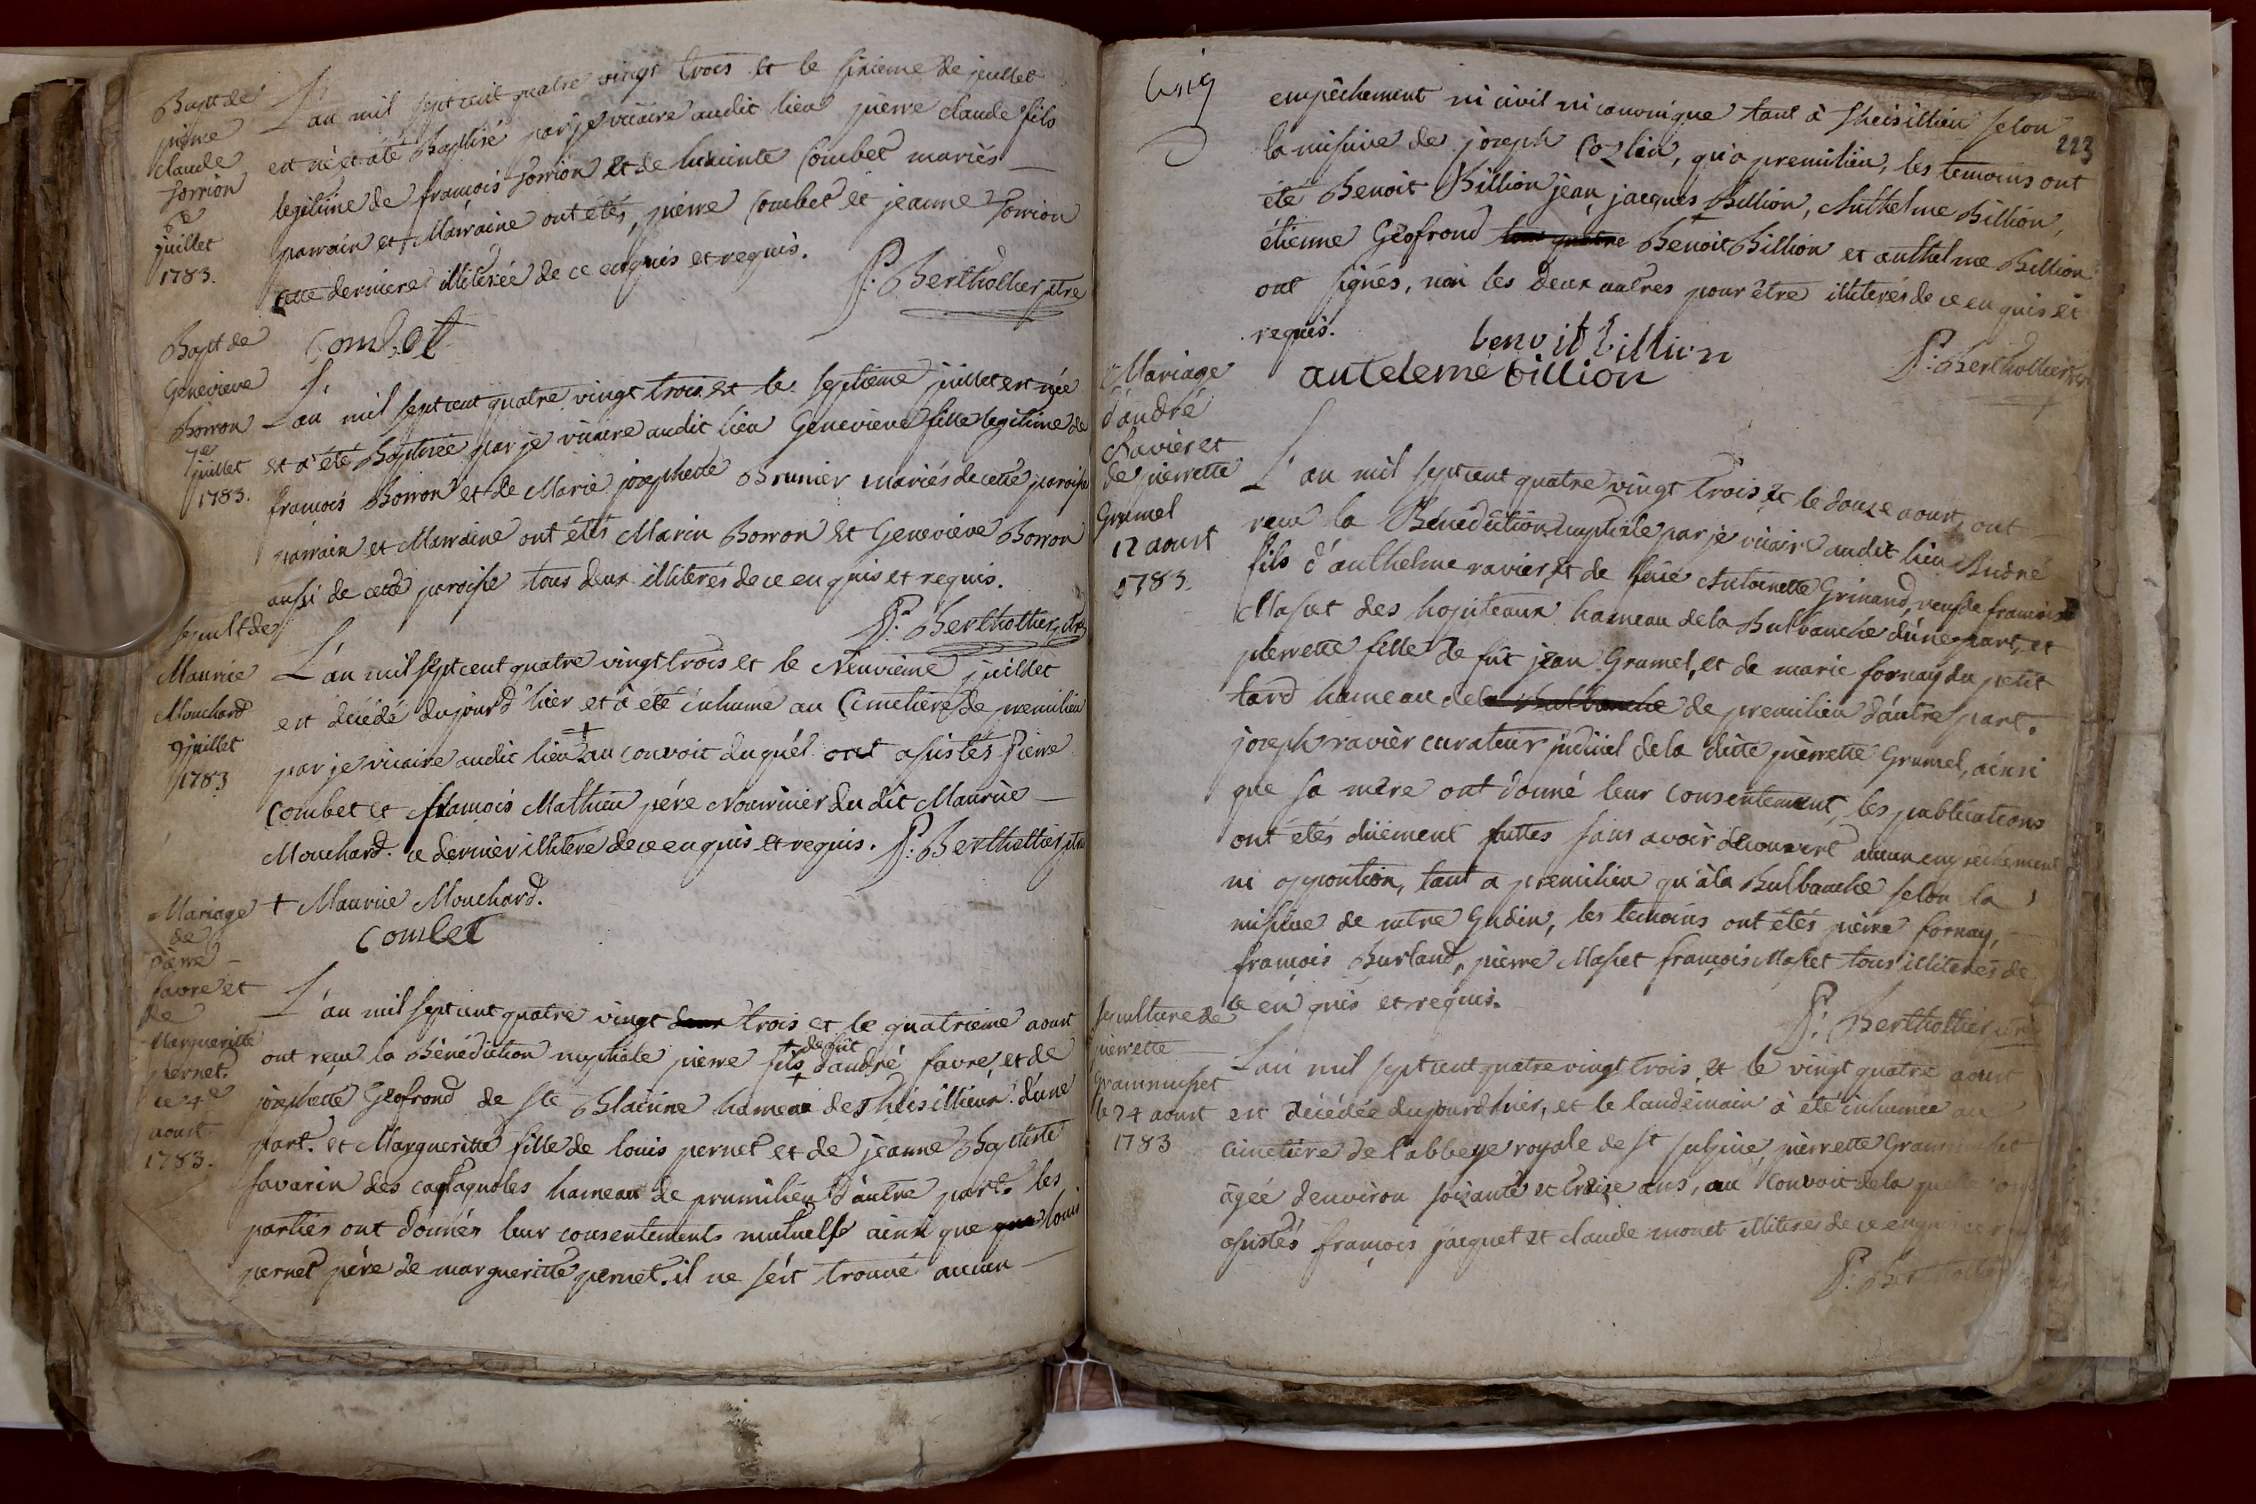 Bapt de
pierre
claude
Jorrion
6e
juillet
1783.
L'an mil sept cent quatre vingt trois et le sixieme de juillet
est né et a été Baptisé par je vicaire audit lieu pierre claude fils
legitime de françois Jorrion et de hiacinte Combet mariés
parrain et Marraine ont étés, pierre Combet et jeanne Jorrion
cette derniere illiterée de ce enquis et requis.
P: Berthollier ptre
Combet
Bapt de
Genevieve
Borron
7e
juillet
1783.
L'an mil sept cent quatre vingt trois et le septieme juillet est née
et a été Baptisée par je vicaire audit lieu Genevieve fille legitime de
françois Borron et de Marie josephette Brunier mariés de cette paroisse
parrain et Marraine ont étés Marin Borron et Genevieve Borron
aussi de cette paroisse tous deux illiterés de ce enquis et requis.
P: Berthollier ptre
sepult de
Maurice
Mouchard
9 juillet
1783
L'an mil sept cent quatre vingt trois et le Neuvieme juillet
est décédé dujourd'hier et à été inhumé au Cimetiere de premilieu
par je vicaire audit lieu + au convoit duquél ont assistés pierre
Combet et françois Mathieu pére Nourricier du dit Maurice
Mouchard. ce dernièr illiteré de ce enquis et requis. P: Berthollier ptre
+ Maurice Mouchard.
Combet
Mariage
de
pierre
favre et
de
Margueritte
pernet.
ce 4e
aoust
1783.
L'an mil sept cent quatre vingt deux trois et le quatrieme aoust
ont reçu la Bénédiction nuptiale pierre fils + de fût d'andré favre, et de
josephette Geofrond de ste Blaisine hameau de Theisillieu d'une
part. et Margueritte fille de louis pernet et de jeanne Baptiste
savarin des castagnoles hameau de prumilieu d'autre part. les
parties ont donnés leur consentements mutuels ainsi que que louis
pernet père de margueritte pernet. il ne sést trouvé aucun
223
empêchement ni civil ni canonique tant à theisillieu selon
la missive de joseph Cozlin, qu'a premilieu, les temoins ont
été Benoit Billion jean jacques Billion, Anthelme Billion,
étienne Géofrond tous quatre Benoit Billion et anthelme Billion
ont signés, non les deux autres pour être illiterés de ce enquis et
requis.
benoit billion
anteleme billion
P: Berthollier ptre
Mariage
d'andré
Ravier et
de pierrette
Grumel
12 aoust
1783.
L'an mil sept cent quatre vingt trois et le douze aoust, ont
reçu la Bénédiction nuptiale par je vicaire audit lieu André
fils d'anthelme ravier, et de feue Antoinette Grinand, veuf de françoise
Masset des hopiteaux hameau de la Bulbanche d'une part, et
pierrette fille de fût jean Grumel, et de marie fornay du petit
tard hameau de la Bulbanche de premilieu d'autre part.
joseph ravièr curateur judiciel de la ditte pièrrette Grumel, ainsi
que sa mère ont donné leur consentement, les publications
ont étés düement faittes sans avoir découvert aucun empêchement
ni opposition, tant a premilieu qu'à la Bulbanche selon la
missive de mtre Gudin, les temoins ont étés pièrre fornay,
françois Burland, pièrre Masset françois Masset tous illiterés de
ce enquis et requis.
P: Berthollier ptre
sepulture de
pierrette
Grammusset
le 24 aoust
1783
L'an mil sept cent quatre vingt trois, et le vingt quatre aoust
est décédée dujourd'huier, et le landemain à été inhumée au
cimetière de l'abbeye royale de st sulpice, pièrrette Grammusset
agée d'environ soixante et treize ans, au Convoit de la quelle ont
assistés françois jacquet et claude monet illiterés de ce enquis et
P: Berthollier